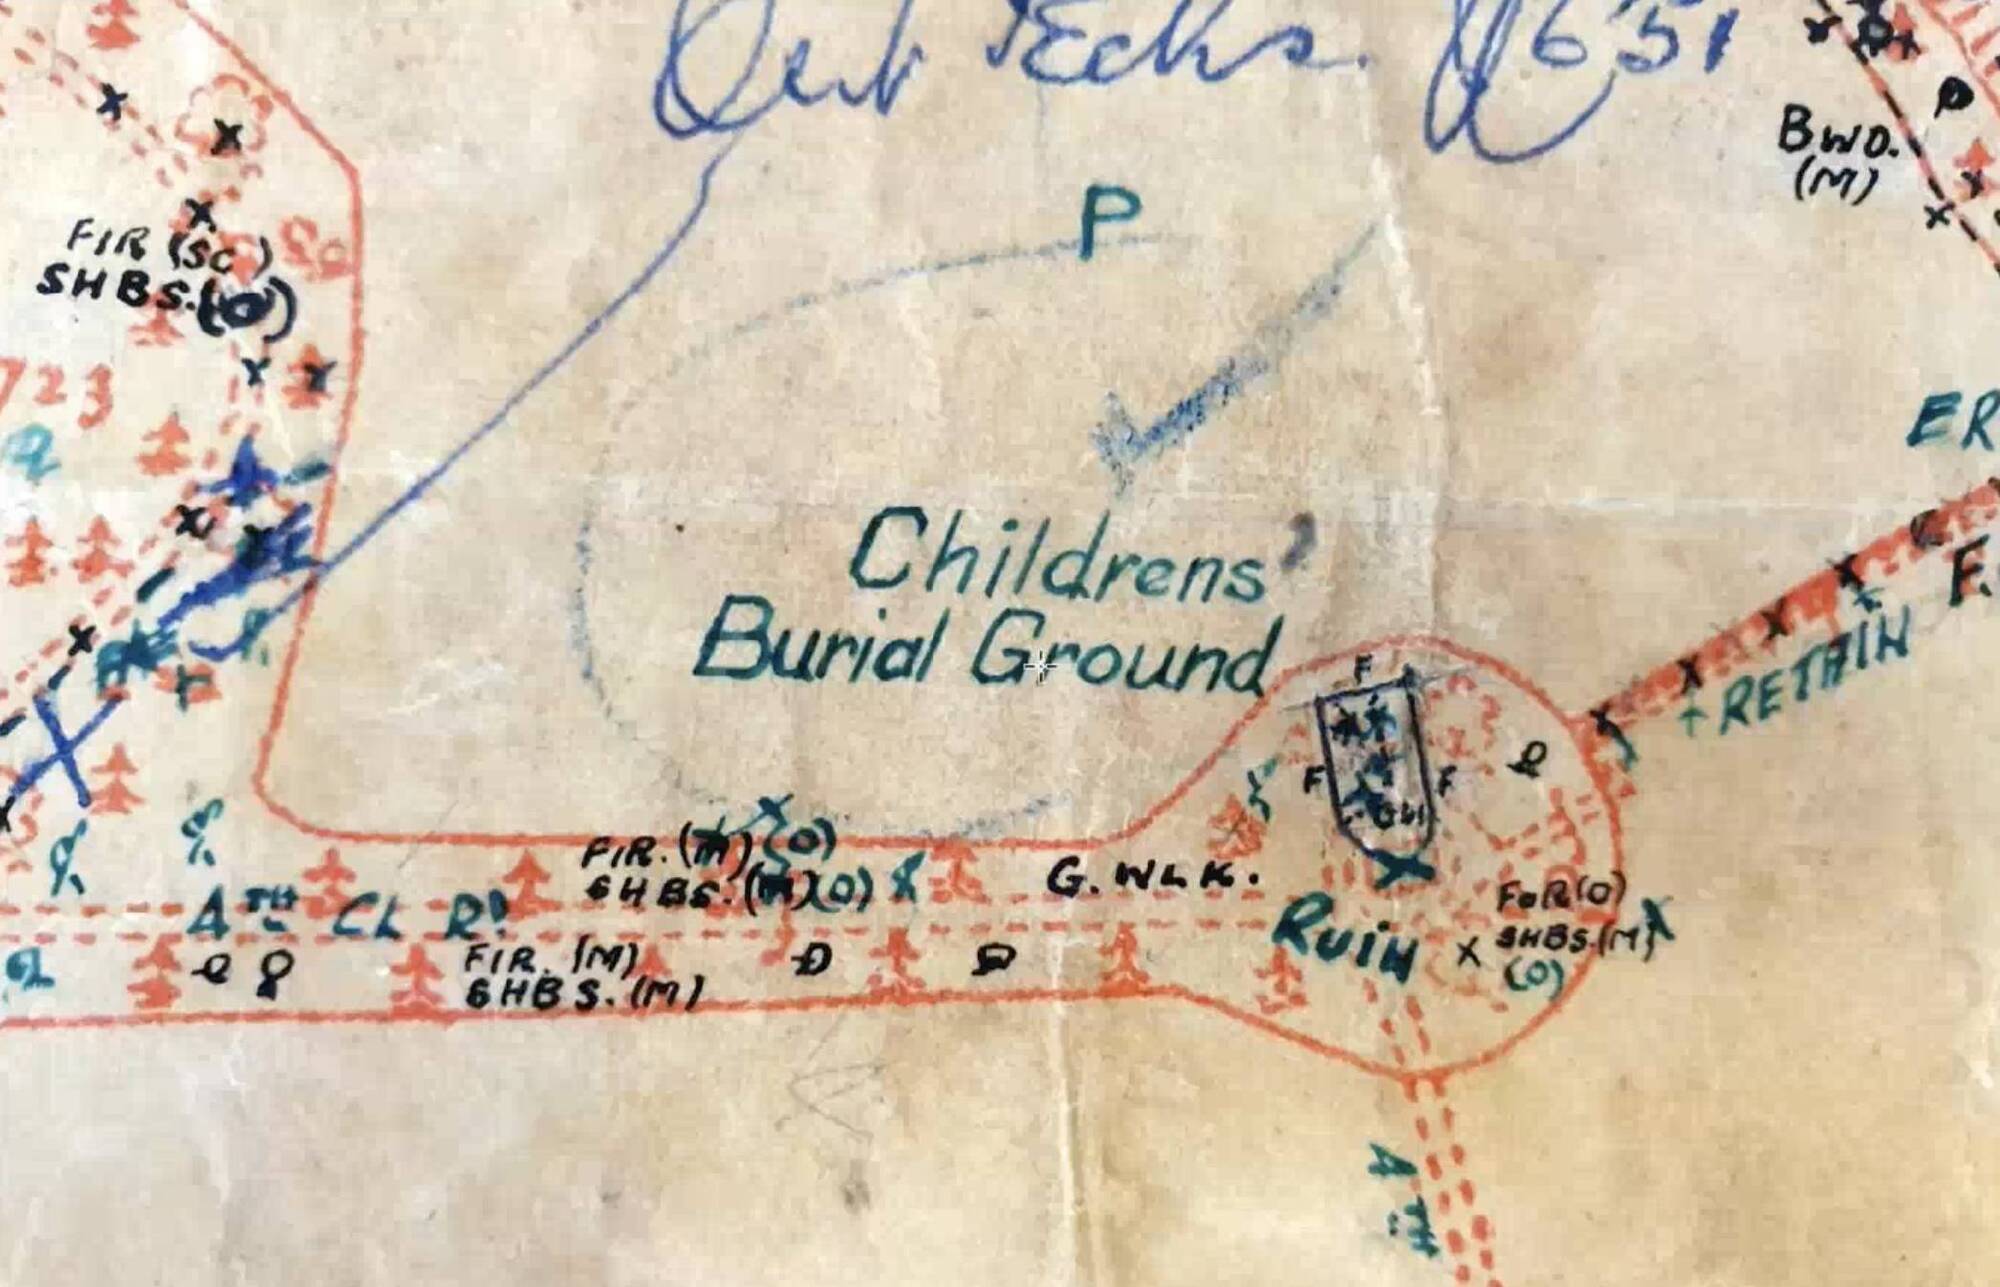 BWD.
(M)
P
FIR (SC)
SHBS.(O)
723
ER
Childrens'
Burial Ground
RETAIN
F
F
F
FIR. (M) (O)
SHBS. (M)(O)
G. WLK.
4TH CL RD
Ruin
FOR(O)
SHBS.(M)
(O)
FIR. (M)
SHBS. (M)
4
TH